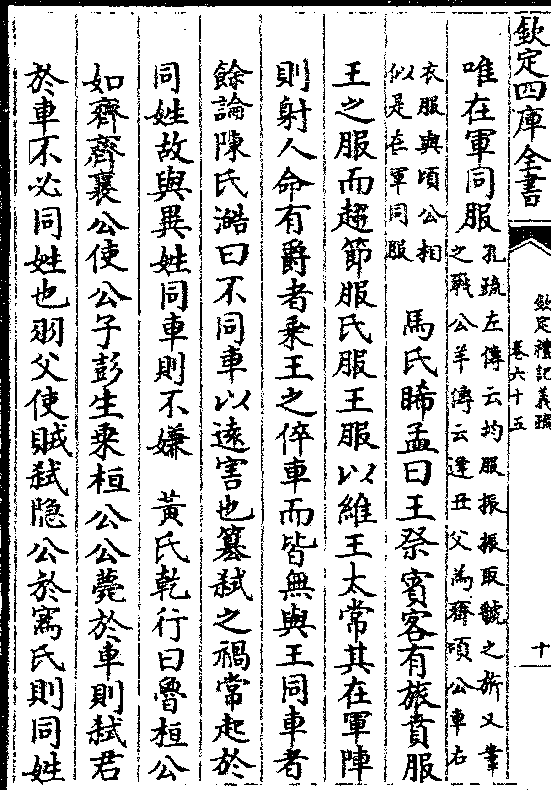 欽定四庫全書
欽定禮記義疏
卷六十五
十
唯在軍同服孔疏左傳云均服振振取虢之旂又鞌
之戰公羊傳云逢丑父為齊頃公車右
衣服與頃公相
似是在軍同服 馬氏睎孟曰王祭賓客有旅賁服
王之服而趨節服氏服王服以維王太常其在軍陣
則射人命有爵者乘王之倅車而皆無與王同車者
餘論陳氏澔曰不同車以遠害也簒弑之禍常起於
同姓故與異姓同車則不嫌 黃氏乾行曰魯桓公
如齊齊襄公使公子彭生乘桓公公薨於車則弑君
於車不必同姓也羽父使賊弑隐公於寪氏則同姓